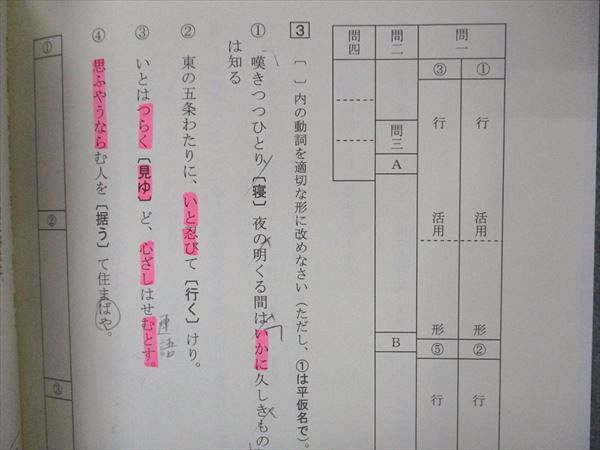 問一
①
行
活用
形
②
行
③
行
活用
形
⑤
行
問二
問三
A
B
問四
3 〔 〕内の動詞を適切な形に改めなさい（ただし、①は平仮名で）。
① 嘆きつつひとり〔寝〕夜の明くる間はいかに久しきもの
は知る
② 東の五条わたりに、いと忍びて〔行く〕けり。
③ いとはつらく〔見ゆ〕ど、心ざしはせむとす。
連語
④ 思ふやうならむ人を〔据う〕て住まばや。
①
②
③